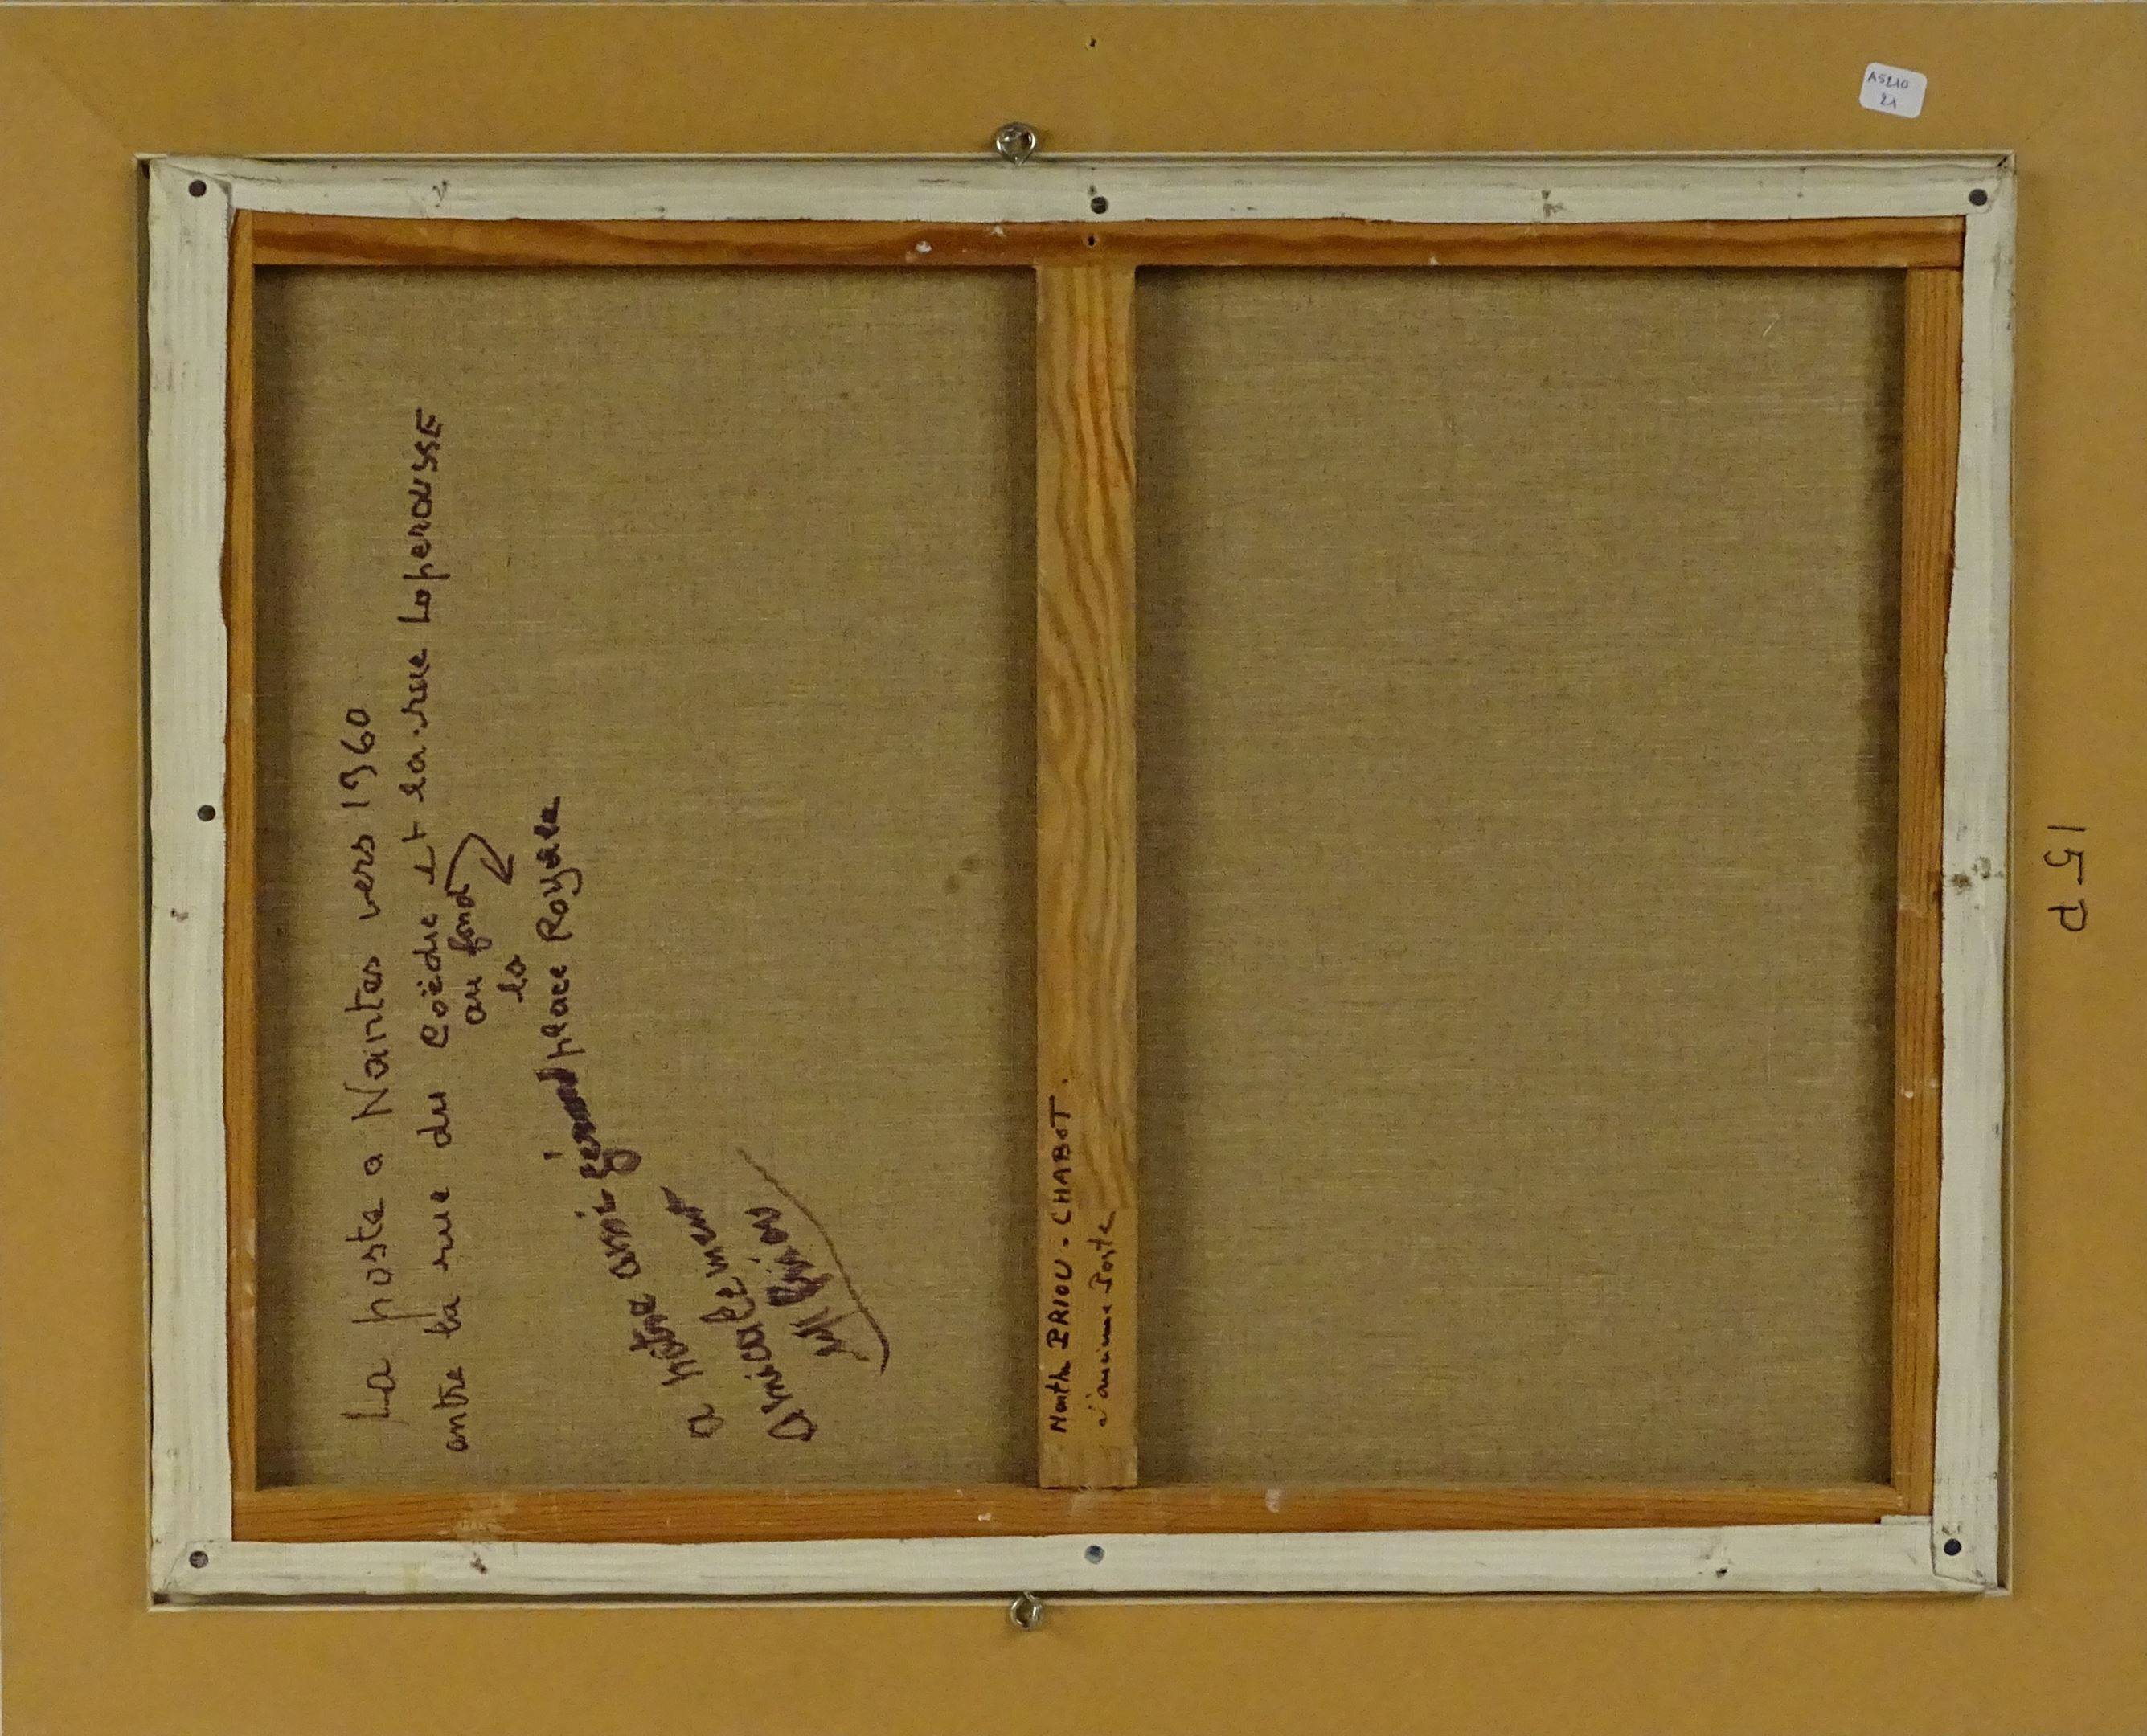 La poste a Nantes vers 1960
entre la rue du Coëdic et la rue Laperousse
au fond
la
place Royale
a notre ami
amicalement
Marthe BRIOU-CHABOT.
l'ancienne Poste
15 P
A5210
21